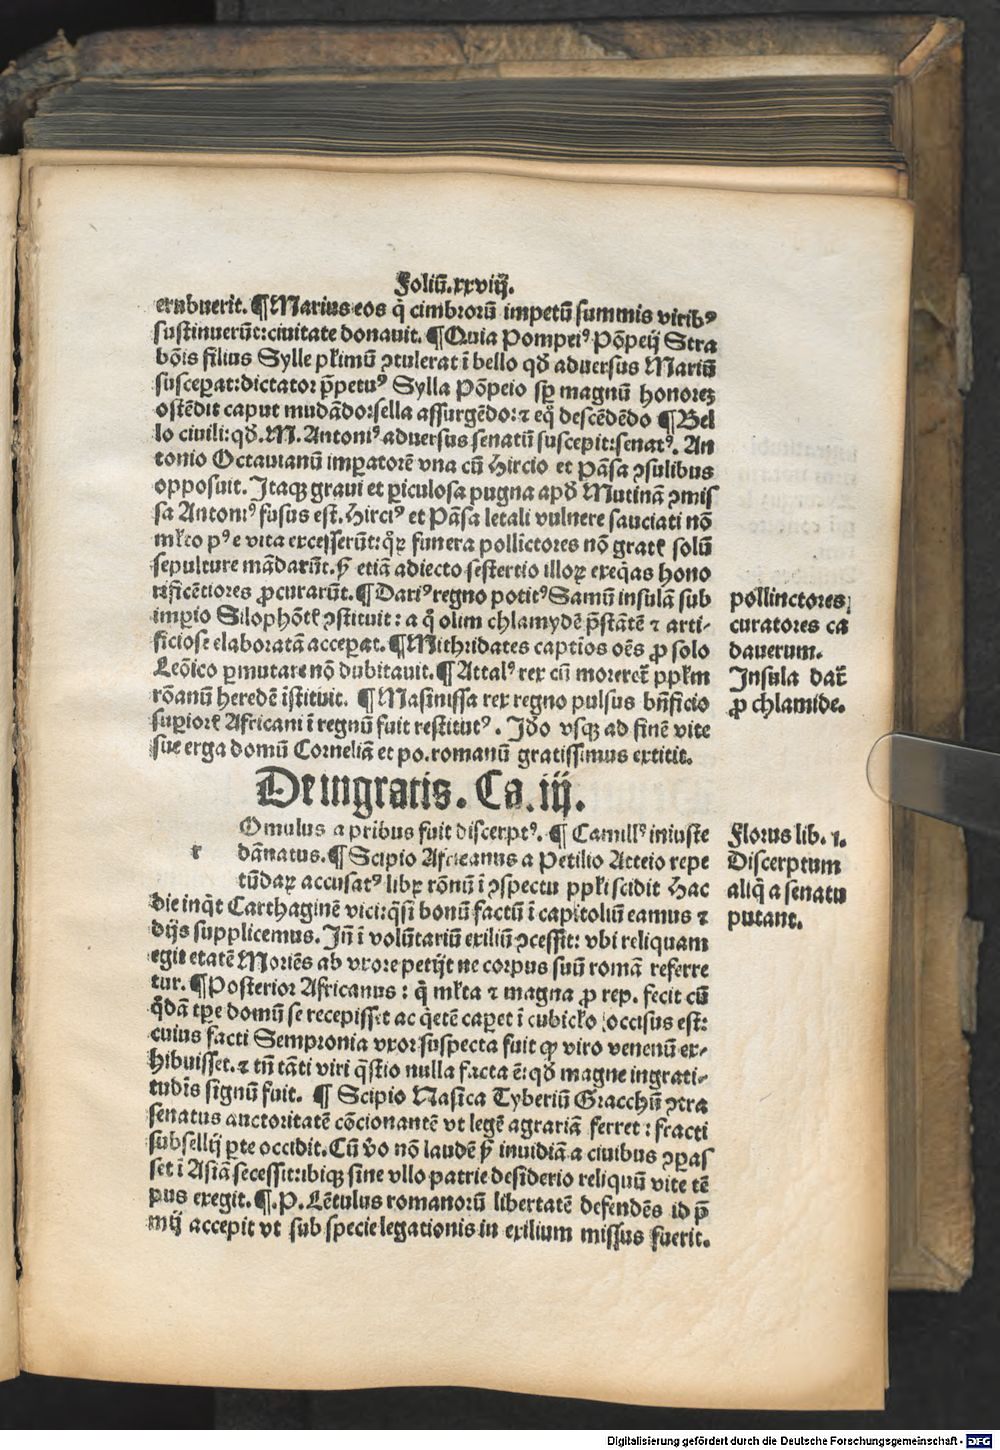 Foliũ.xxviij.
erubuerit. ¶Marius eos q̇ cimbrorũ impetũ summis virib⁹
sustinuerũt: ciuitate donauit. ¶Quia Pompei⁹ Põpeij Stra
bõis filius Sylle pl'imũ ɔtulerat ĩ bello qđ aduersus Mariũ
susceꝑat: dictator ꝑpetu⁹ Sylla Põpeio sꝑ magnũ honorez
ostẽdit caput nudãdo: sella assurgẽdo: ⁊ eq̊ descẽdẽdo ¶Bel
lo ciuili: qđ. M. Antoni⁹ aduersus senatũ suscepit: senat⁹. An
tonio Octauianũ imꝑatorẽ vna cũ Hircio et Pãsa ɔsulibus
opposuit. Itaqꝫ graui et ꝑiculosa pugna apđ Mutinã ɔmis
sa Antoni⁹ fusus est. Hirci⁹ et Pãsa letali vulnere sauciati nõ
ml'to p⁹ e vita excesserũt: qꝝ funera pollictores nõ grat' solũ
sepulture mãdarũt. sꝫ etiã adiecto sestertio illoꝝ exeq̇as hono
rificẽtiores ꝓcurarũt. ¶Dari⁹ regno potit⁹ Samũ insulã sub
imꝑio Silophõt' ɔstituit: a q̊ olim chlamydẽ p̄stãtẽ ⁊ arti-
ficiose elaboratã acceꝑat. ¶Mithridates captiõs oẽs ꝓ solo
Leõico ꝑmutare nõ dubitauit. ¶Attal⁹ rex cũ moreret' ppl'm
rõanũ heredẽ ĩstituit. ¶Masinissa rex regno pulsus bñficio
suꝑior' Africani ĩ regnũ fuit restitut⁹. Iđo vsqꝫ ad finẽ vite
sue erga domũ Corneliã et po. romanũ gratissimus extitit.
pollinctores
curatores ca
dauerum.
Insula dat'
ꝓ chlamide.
De ingratis. Ca. iij.
r
Omulus a pribus fuit discerpt⁹. ¶ Camill⁹ iniuste
dãnatus. ¶Scipio Africanus a Petilio Acteio repe
tũdaꝝ accusat⁹ libꝝ rõnũ ĩ ɔspectu ppl'i scidit Hac
die inq̇t Carthaginẽ vici: q̃si bonũ factũ ĩ capitoliũ eamus ⁊
dijs supplicemus. Iñ ĩ volũtariũ exiliũ ɔcessit: vbi reliquam
egit etatẽ Moriẽs ab vxore petijt ne corpus suũ romã referre
tur. ¶Posterior Africanus: q̇ ml'ta ⁊ magna ꝓ rep. fecit cũ
q̊dã tꝑe domũ se recepisset ac q̇etẽ caꝑet ĩ cubicl'o occisus est:
cuius facti Sempronia vxor suspecta fuit ꝙ viro venenũ ex-
hibuisset. ⁊ tñ tãti viri q̃stio nulla facta ẽ: qđ magne ingrati-
tudĩs signũ fuit. ¶ Scipio Nasica Tyberiũ Gracchũ ɔtra
senatus auctoritatẽ cõcionantẽ vt legẽ agrariã ferret: fracti
subsellij ꝑte occidit. Cũ v̊o nõ laudẽ sꝫ inuidiã a ciuibus ɔꝑas
set ĩ Asiã secessit: ibiqꝫ sine vllo patrie desiderio reliquũ vite tẽ
pus exegit. ¶.P. Lẽtulus romanorũ libertatẽ defendẽs id p̄
mij accepit vt sub specie legationis in exilium missus fuerit.
Florus lib. 1.
Discerptum
aliq̇ a senatu
putant.
Digitalisierung gefördert durch die Deutsche Forschungsgemeinschaft - DFG